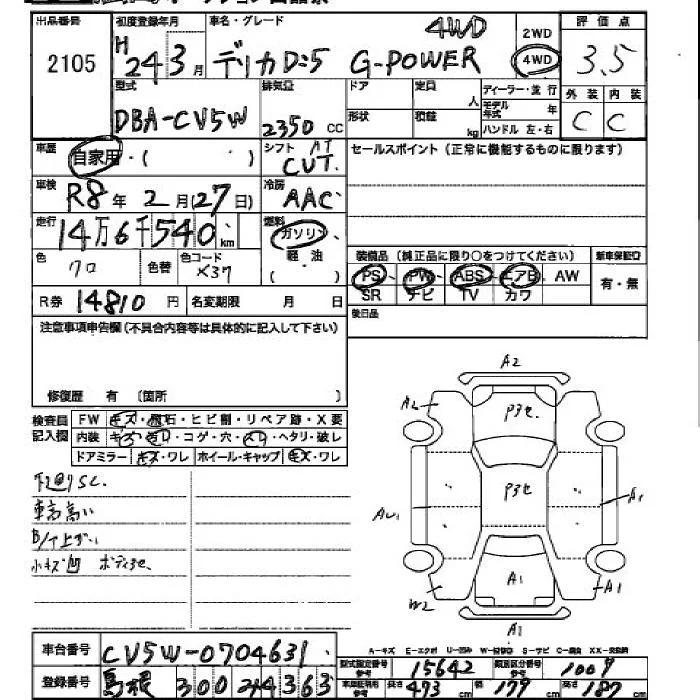 出品番号 初度登録年月 車名・グレード 4WD 2WD 評価点
2105 H 24 3月 デリカD:5 G-POWER 4WD 3.5
型式 排気量 ドア 定員 人 ディーラー・並行 外装 内装
DBA-CV5W 2350 CC 形状 積載 kg モデル年式 年 C C
ハンドル 左・右
車歴 自家用・( ) シフト AT CVT セールスポイント(正常に機能するものに限ります)
車検 R8年 2月(27日) 冷房 AAC
走行 14万6千540km 燃料 ガソリン 軽油 ( )
色 クロ 色替 色コード X37
装備品(純正品に限り○をつけてください) 新車保証
PS PW ABS エアB AW 有・無
SR ナビ TV カワ
R券 14810円 名変期限 月 日 後日品
注意事項申告欄(不具合内容等は具体的に記入して下さい)
修復歴 有 (箇所 )
検査員記入欄 FW キズ・飛石・ヒビ割・リペア跡・X要
内装 キズ・コゲ・穴・スレ・ヘタリ・破レ
ドアミラー キズ・ワレ ホイール・キャップ キズ・ワレ
下廻りSC.
車高高い
小キズ凹 ボディ
A2
A2
P3セ
P3セ
A1
A1
W2
A1
A1
車台番号 CV5W-0704631
A-キズ E-エクボ U-凹み S-サビ C-腐食
登録番号 島根 300 24363
型式指定番号 15642 類別区分番号 1007
長さ 473 cm 幅 179 cm 高さ 187 cm